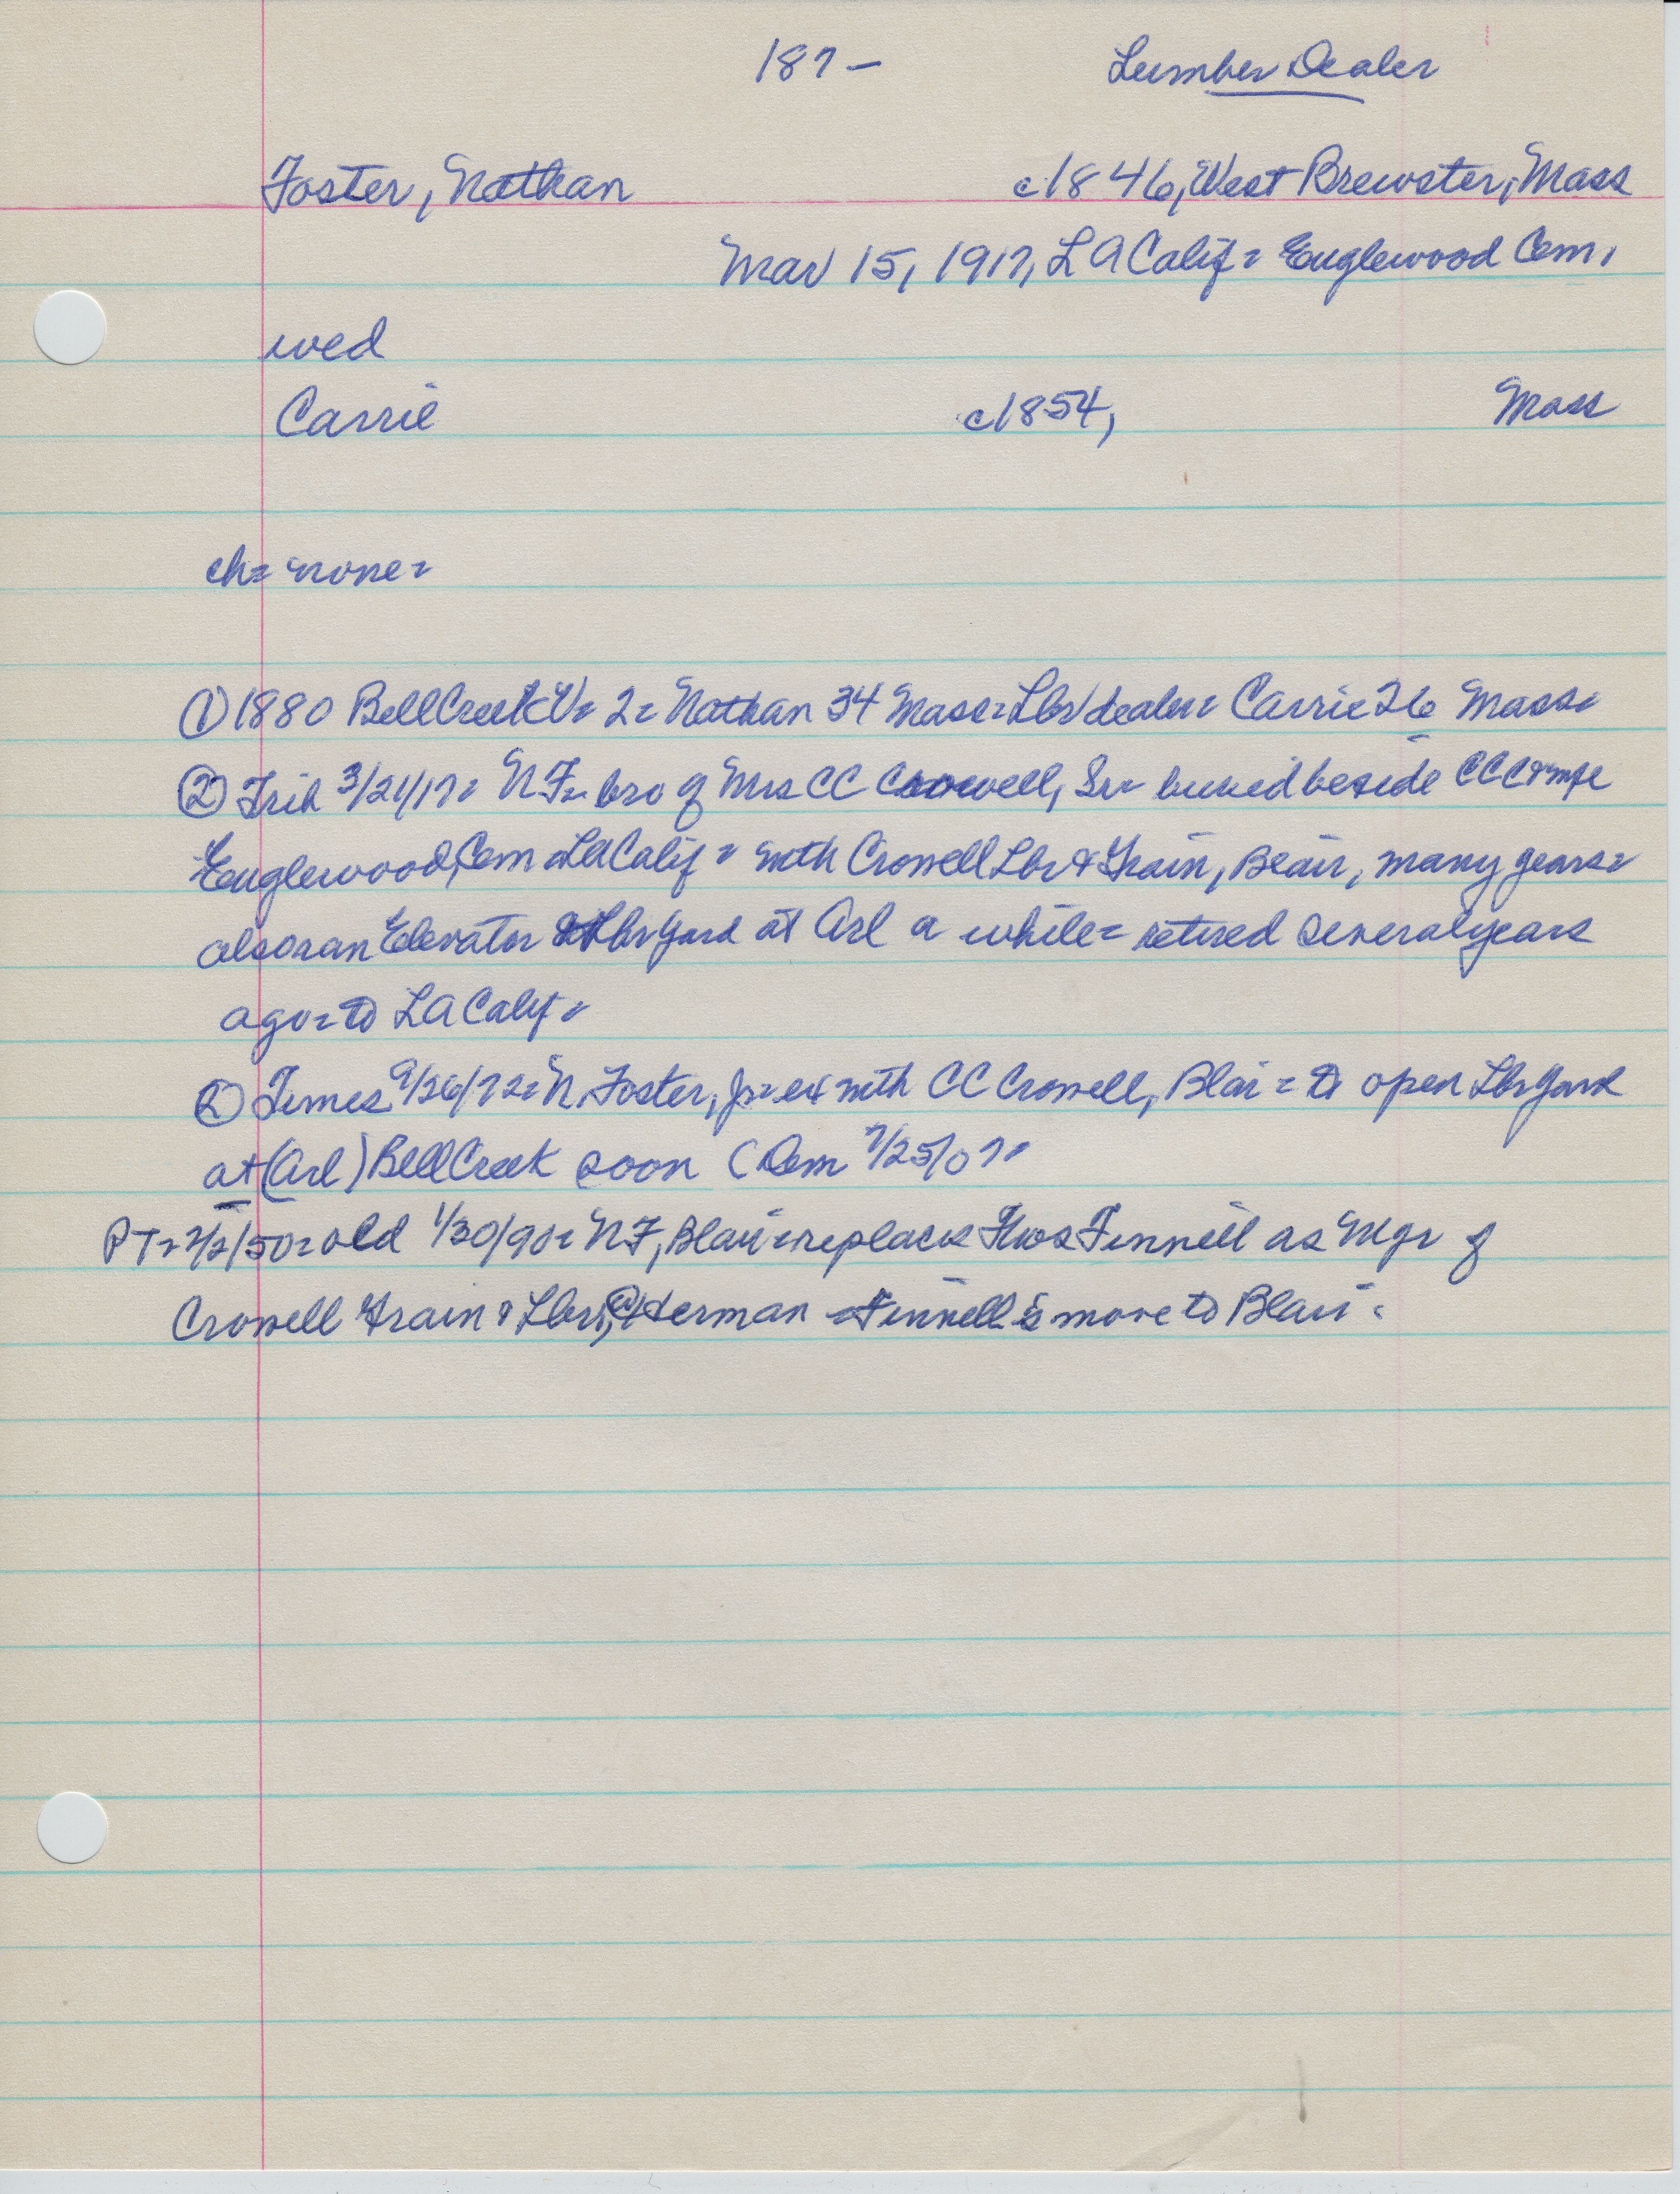 187- Lumber Dealer
Foster, Nathan c1846, West Brewster, Mass
Mar 15, 1917, LA Calif = Englewood Cem.
wed
Carrie c1854, Mass
ch= none=
① 1880 Bell Creek V= 2= Nathan 34 Mass= Lbr dealer= Carrie 26 Mass=
② Trib 3/21/17= NF= bro of Mrs CC Crowell, Sr= buried beside CCC & wife
Englewood, Cem LA Calif = with Crowell Lbr & Grain, Blair, many years=
also ran Elevator & Lbr yard at Arl a while= retired several years
ago= to LA Calif=
② Times 9/26/72= N Foster, Jr= ex with CC Crowell, Blair = to open Lbr yard
at (Arl) Bell Creek soon (Dem 7/25/07=
PT= 2/2/50= old 1/30/90= NF, Blair= replaces Thos Finnell as Mgr of
Crowell Grain & Lbr, @ Herman = Finnell's move to Blair=